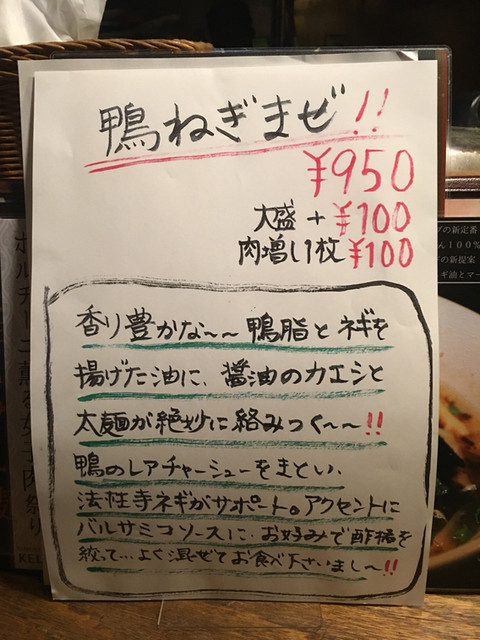 鴨ねぎまぜ!!
¥950
大盛 + ¥100
肉増し1枚 ¥100
香り豊かな〜〜鴨脂とネギを
揚げた油に、醤油のカエシと
太麺が絶妙に絡みつく〜〜!!
鴨のレアチャーシューをまとい、
法性寺ネギがサポート。アクセントに
バルサミコソースに、お好みで酢橘を
絞って…よく混ぜてお食べ下さいまし〜!!
の新定番
ん100%
の新提案
ギ油とマー
KEL